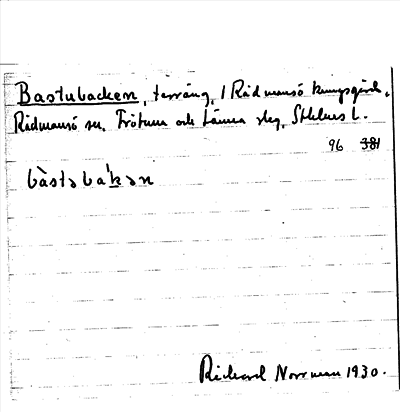 Bastubacken, terräng, 1 Rådmansö kungsgård,
Rådmansö sn, Frötuna och Länna skg, Sthlms l.
96 381
bàstabákan
Richard Norrman 1930.